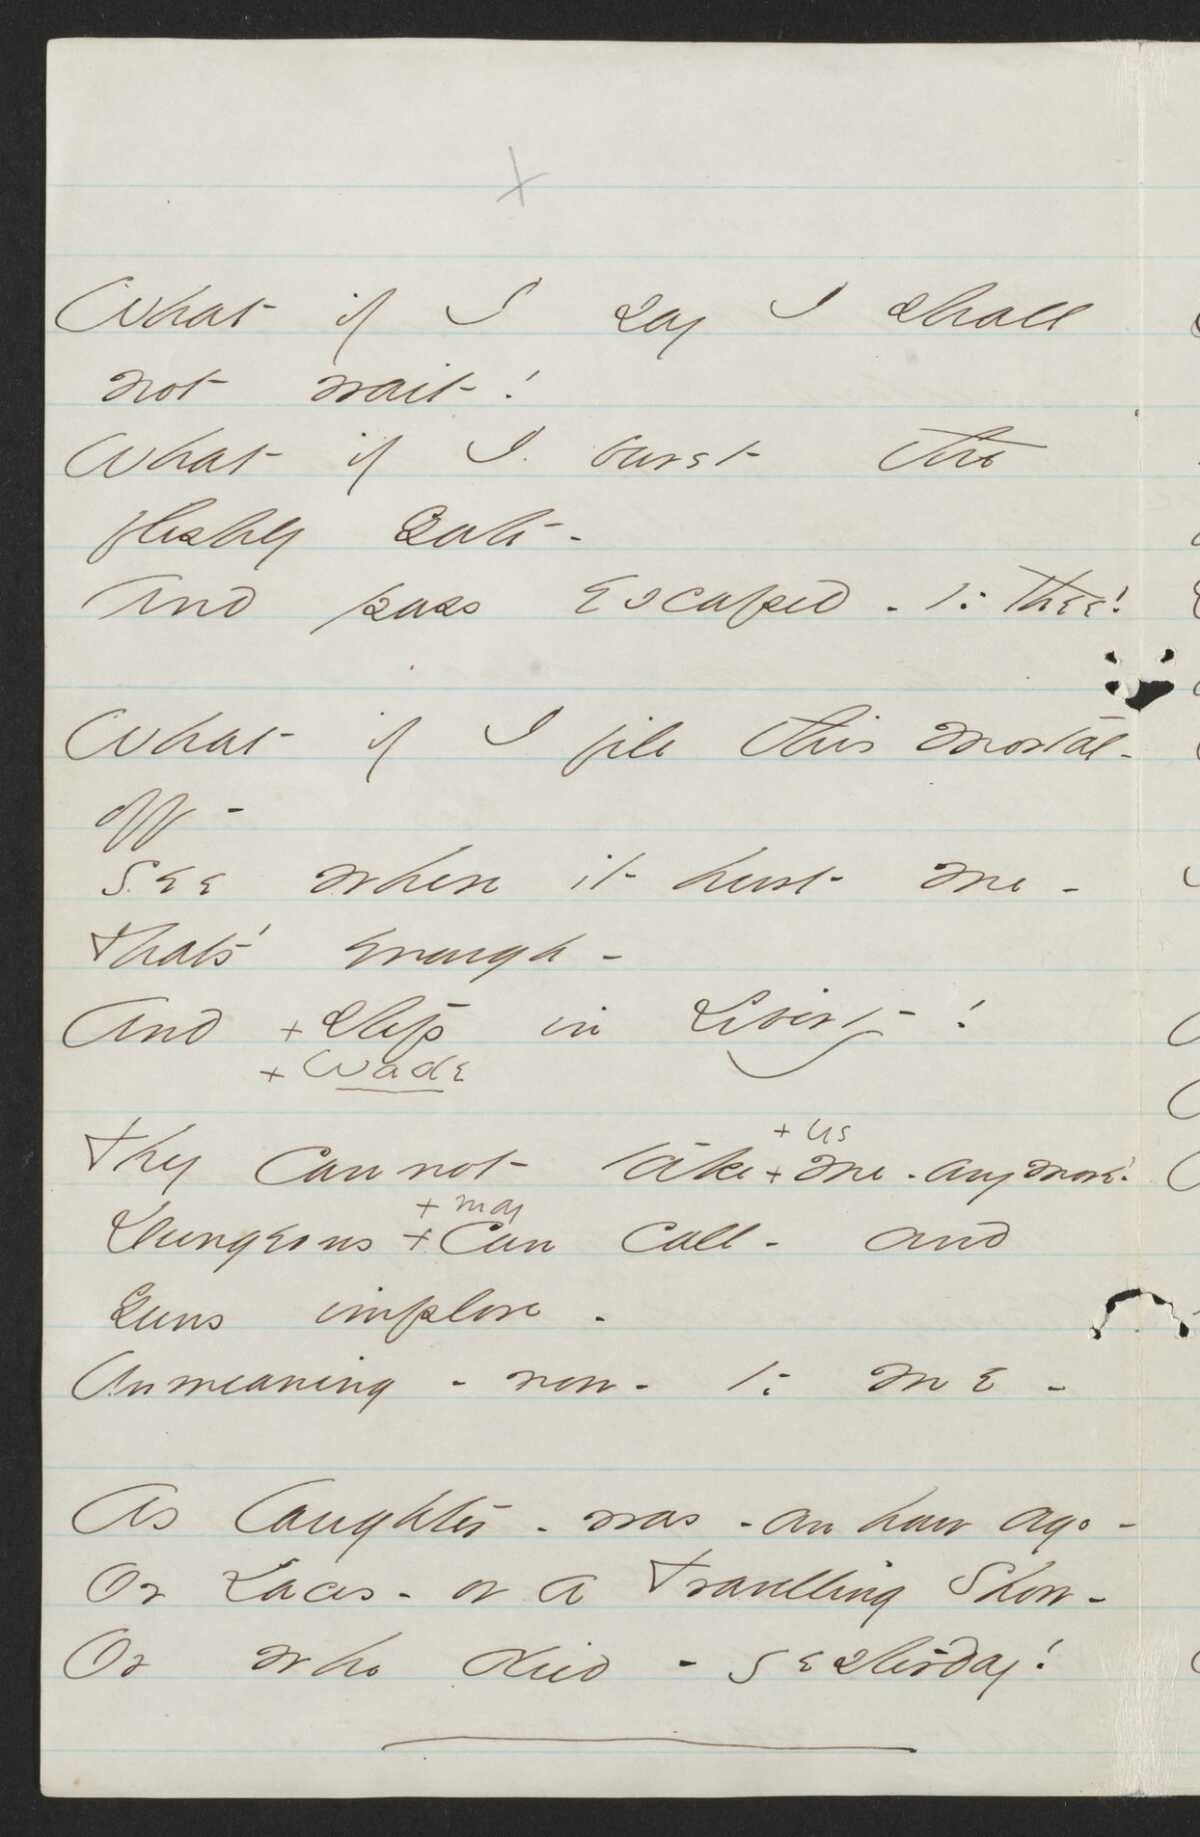 What if I say I shall
not wait!
What if I burst the
fleshly Gate -
And pass Escaped - to thee!
What if I file this mortal -
off -
See where it hurt me -
That's enough -
And + step in Liberty!
+ Wade
They Cannot take + me - any more!
+ us
Dungeons + Can Call - and
+ may
Guns implore -
Unmeaning - now - to me -
As laughter - was - an hour ago -
Or Laces - or a Travelling Show -
Or who died - yesterday!